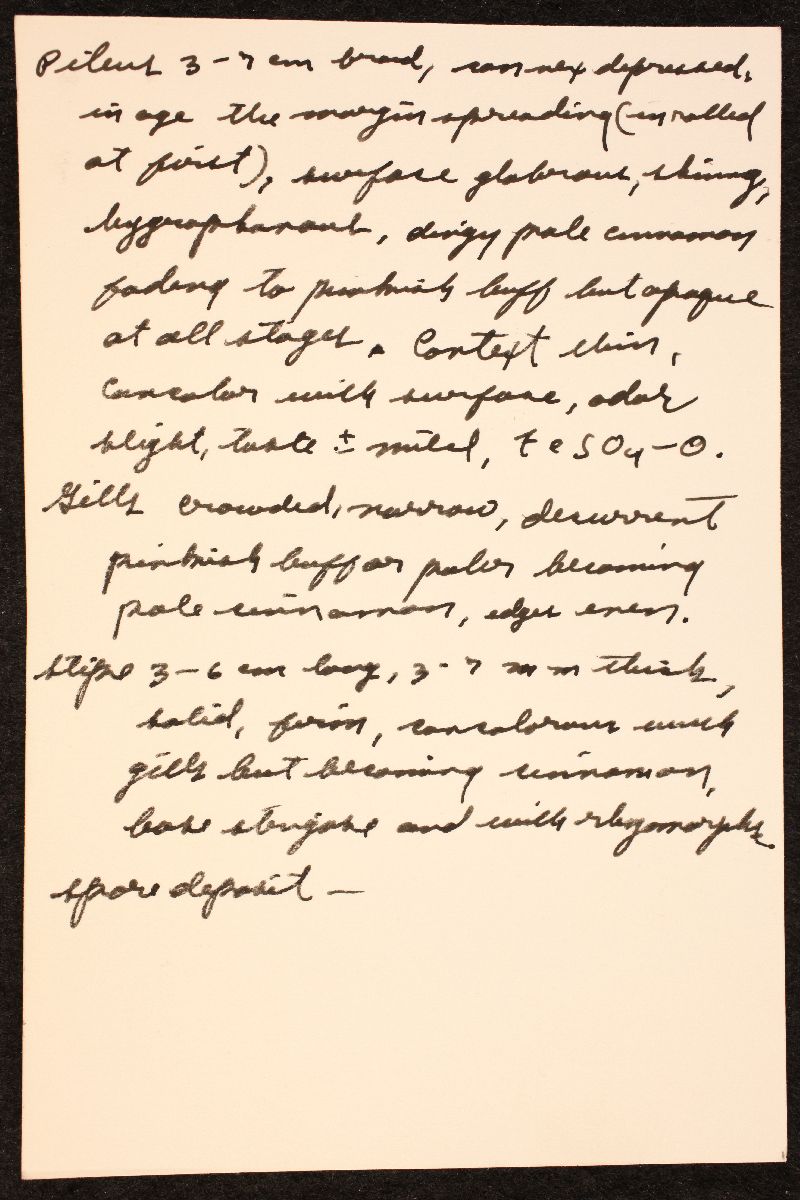 Pileus 3-7 cm broad, convex depressed,
in age the margin spreading (inrolled
at first), surface glabrous, shining,
hygrophanous, dingy pale cinnamon
fading to pinkish buff but opaque
at all stages. Context thin,
concolor with surface, odor
slight, taste ± mild, FeSO4-O.
Gills crowded, narrow, decurrent
pinkish buff or paler becoming
pale cinnamon, edges even.
Stipe 3-6 cm long, 3-7 mm thick,
solid, firm, concolorous with
gills but becoming cinnamon,
base strigose and with rhizomorphs.
spore deposit —